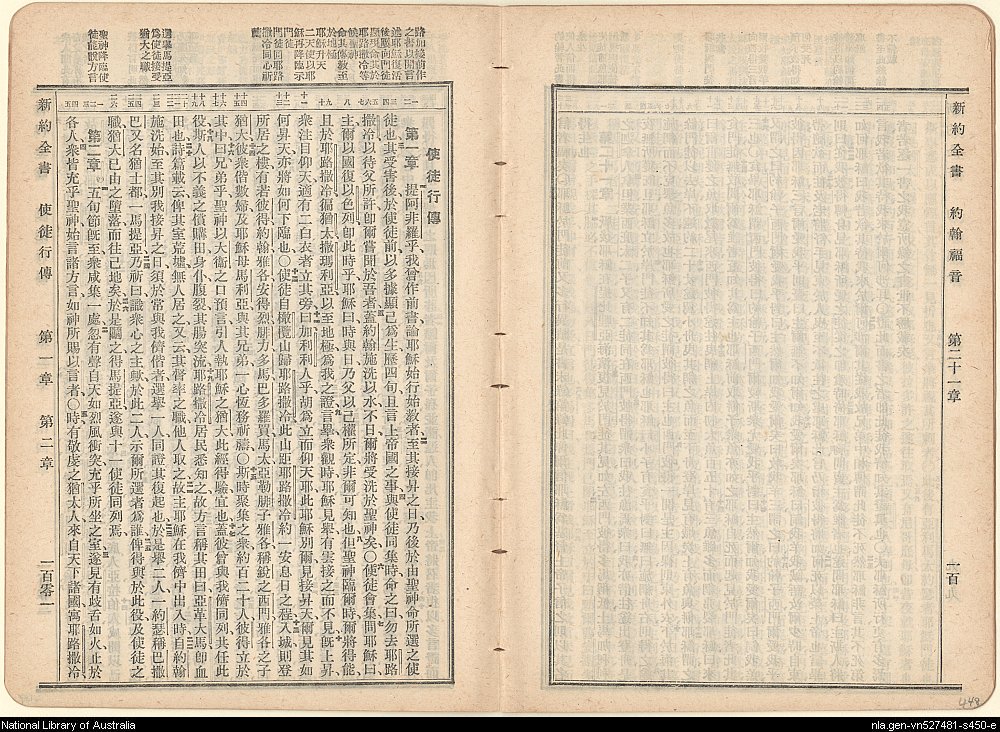 新約全書 約翰福音 第二十一章 一百
路加緣前作
之書以開言
述耶穌復活
後顯現於門徒
耶路撒冷等
候聖神
命其傳教至
於地極
耶穌升天
二天使以耶
穌再降臨示
門徒
門徒回耶路
撒冷同心祈
禱
選舉馬提亞
爲使徒接受
猶大之職
聖神降臨使
徒能說方言
使徒行傳
第一章 提阿非羅乎我曾作前書論耶穌始行始教者至其接昇之日乃後於由聖神命所選之使
徒也其受害後於使徒前以多據顯己爲生歷四旬且言上帝國之事與使徒同集時命之曰勿去耶路
撒冷以待父所許卽爾嘗聞於吾者蓋約翰施洗以水不日爾將受洗於聖神矣○使徒會集問耶穌曰
主爾以國復以色列卽此時乎耶穌曰時與日乃父以己權所定非爾可知也但聖神臨爾時爾將得能
且於耶路撒冷徧猶太撒瑪利亞以至地極爲我之證言畢衆觀時耶穌見舉有雲接之而不見旣上昇
衆注目仰天適有二白衣者立其旁曰加利利人乎胡爲立而仰天耶此耶穌別爾見接昇天爾見其如
何昇天亦將如何下臨也○使徒自橄欖山歸耶路撒冷此山距耶路撒冷約一安息日之程入城則登
所居之樓有若彼得約翰雅各安得烈腓力多馬巴多羅買馬太亞勒腓子雅各稱銳之西門雅各之子
猶大彼衆偕數婦及耶穌母馬利亞與其兄弟一心恆務祈禱○斯時聚集之衆約百二十人彼得立於
其中曰兄弟乎聖神以大衞之口預言引人執耶穌之猶大此經得驗宜也蓋彼曾與我儕同列共任此
役斯人以不義之價購田身仆腹裂其腸突流耶路撒冷居民悉知之故方言稱其田曰亞革大馬卽血
田也詩篇載云俾其室荒墟無人居之又云其督率之職他人取之故主耶穌在我儕中出入時自約翰
施洗始至其別我接昇之日須於常與我儕偕者選舉一人同證其復起也於是舉二人一約瑟稱巴撒
巴又名猶士都一馬提亞乃祈曰識衆心之主歟於此二人示爾所選者爲誰俾得與於此役及使徒之
職猶大已由之墮落而往己地矣於是鬮之得馬提亞遂與十一使徒同列焉
第二章 五旬節旣至衆咸集一處忽有聲自天如烈風衝突充乎所坐之室遂見有歧舌如火止於
各人衆皆充乎聖神始言諸方言如神所賜以言者○時有敬虔之猶太人來自天下諸國寓耶路撒冷
新約全書 使徒行傳 第一章 第二章 一百零一
448
National Library of Australia
nla.gen-vn527481-s450-e